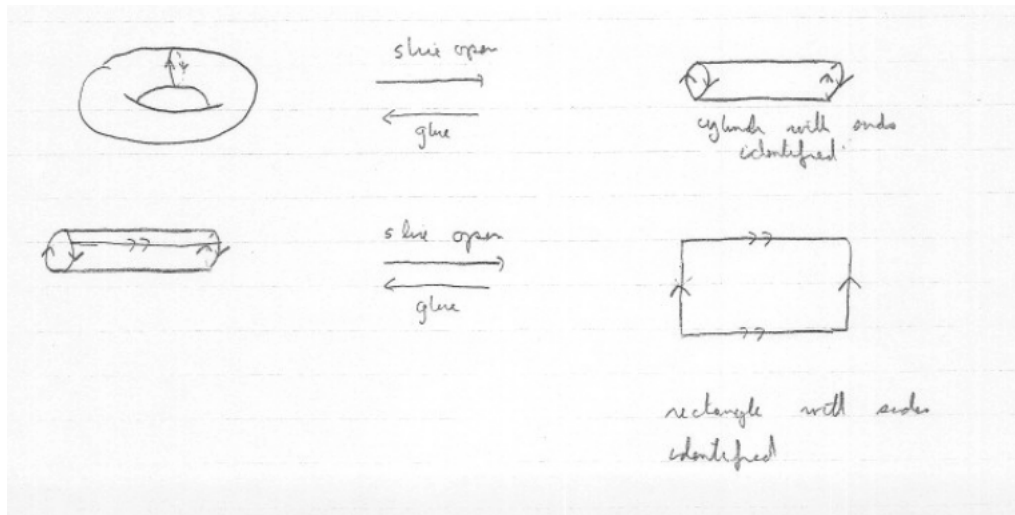 slice open
glue
cylinder with ends
identified
slice open
glue
rectangle with sides
identified